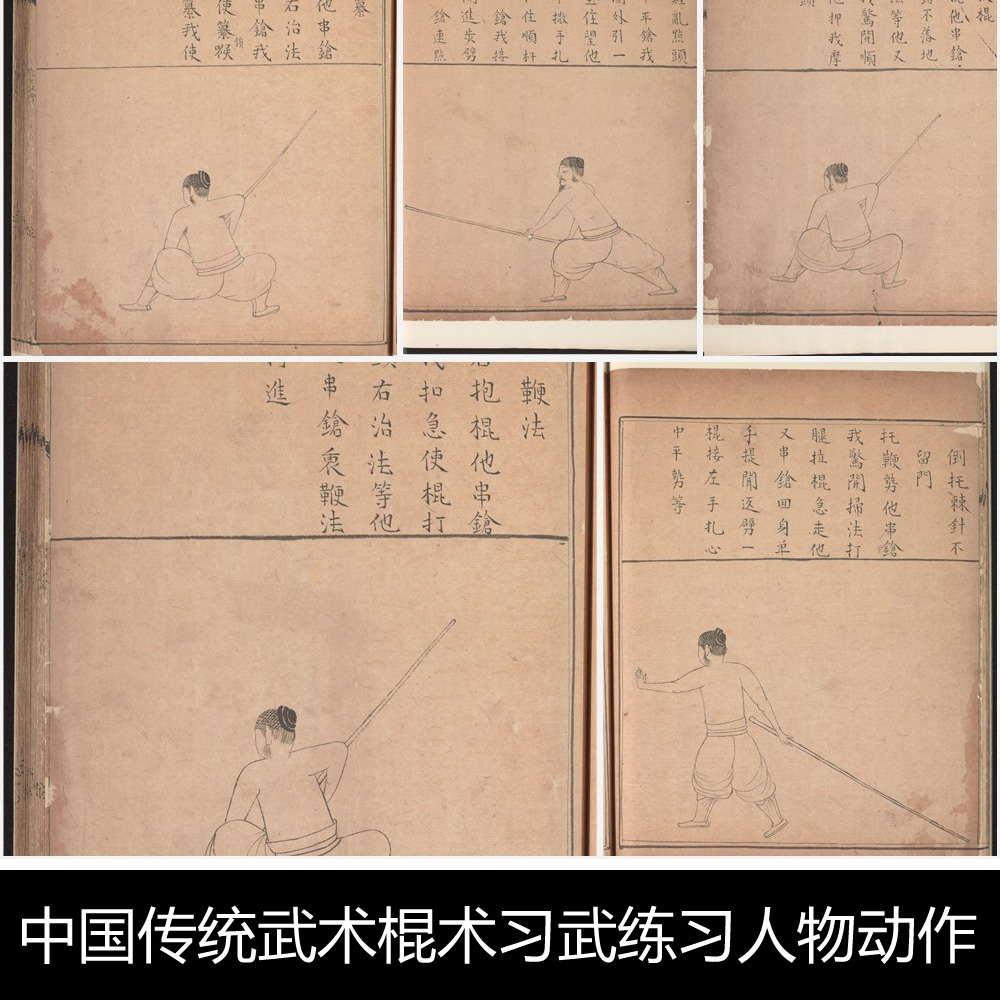 纂
他串鎗
右治法
串鎗我
使纂猴
纂我使
亂點頭
平鎗我
圈外引一
坐住望他
撒手扎
住順杆
鎗我接
進發劈
鎗連點
棍
他串鎗
不落地
法等他又
我驚開順
他押我摩
頭
鞭法
抱棍他串鎗
扣急使棍打
右治法等他
串鎗裹鞭法
進
倒托棘針不
留門
托鞭勢他串鎗
我驚開掃法打
腿拉棍急走他
又串鎗回身单
手提開返劈一
棍接左手扎心
中平勢等
中国传统武术棍术习武练习人物动作